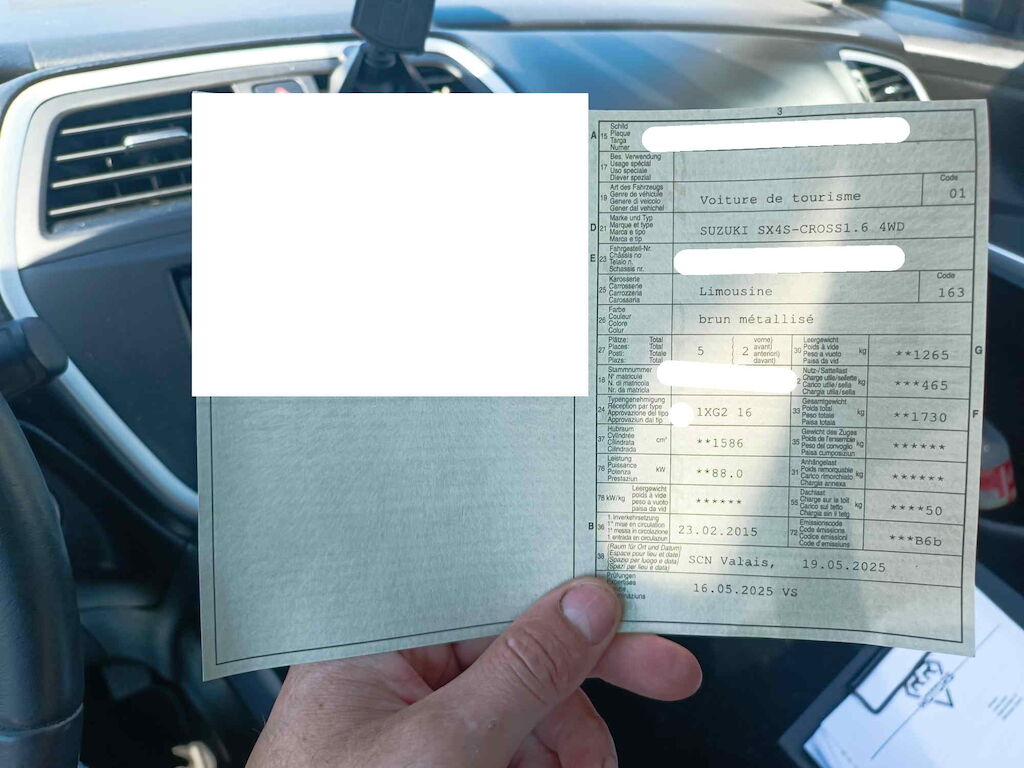 3
A 15 Schild
Plaque
Targa
Numer
17 Bes. Verwendung
Usage spécial
Uso speciale
Diever spezial
19 Art des Fahrzeugs
Genre de véhicule
Genere di veicolo
Gener dal vehichel
Voiture de tourisme
Code
01
D 21 Marke und Typ
Marque et type
Marca e tipo
Marca e tip
SUZUKI SX4S-CROSS1.6 4WD
E 23 Fahrgestell-Nr.
Châssis no
Telaio n.
Schassis nr.
25 Karosserie
Carrosserie
Carrozzeria
Carossaria
Limousine
Code
163
26 Farbe
Couleur
Colore
Colur
brun métallisé
27 Plätze: Total
Places: Total
Posti: Totale
Plazs: Total
5 { 2 vorne)
avant)
anteriori)
davant)
30 Leergewicht
Poids à vide
Peso a vuoto
Paisa da vid
kg **1265 G
18 Stammnummer
N° matricule
N. di matricola
Nr. da matricla
Nutz-/Sattellast
Charge utile/sellette
Carico utile/sella
Chargia utila/sella
kg ***465
24 Typengenehmigung
Réception par type
Approvazione del tipo
Approvaziun dal tip
1XG2 16
33 Gesamtgewicht
Poids total
Peso totale
Paisa totala
kg **1730 F
37 Hubraum
Cylindrée
Cilindrata
Cilindrada
cm³ **1586
35 Gewicht des Zuges
Poids de l'ensemble
Peso del convoglio
Paisa cumposiziun
kg ******
76 Leistung
Puissance
Potenza
Prestaziun
kW **88.0
31 Anhängelast
Poids remorquable
Carico rimorchiato
Chargia annexa
kg ******
78 kW/kg Leergewicht
poids à vide
peso a vuoto
paisa da vid
******
55 Dachlast
Charge sur le toit
Carico sul tetto
Chargia sin il tetg
kg ****50
B 36 1. Inverkehrsetzung
1re mise en circulation
1a messa in circolazione
1. entrada en circulaziun
23.02.2015
72 Emissionscode
Code émissions
Codice emissioni
Code d'emissiuns
***B6b
38 (Raum für Ort und Datum)
(Espace pour lieu et date)
(Spazio per luogo e data)
(Spazi per lieu e data)
SCN Valais, 19.05.2025
Prüfungen
Expertises
16.05.2025 VS